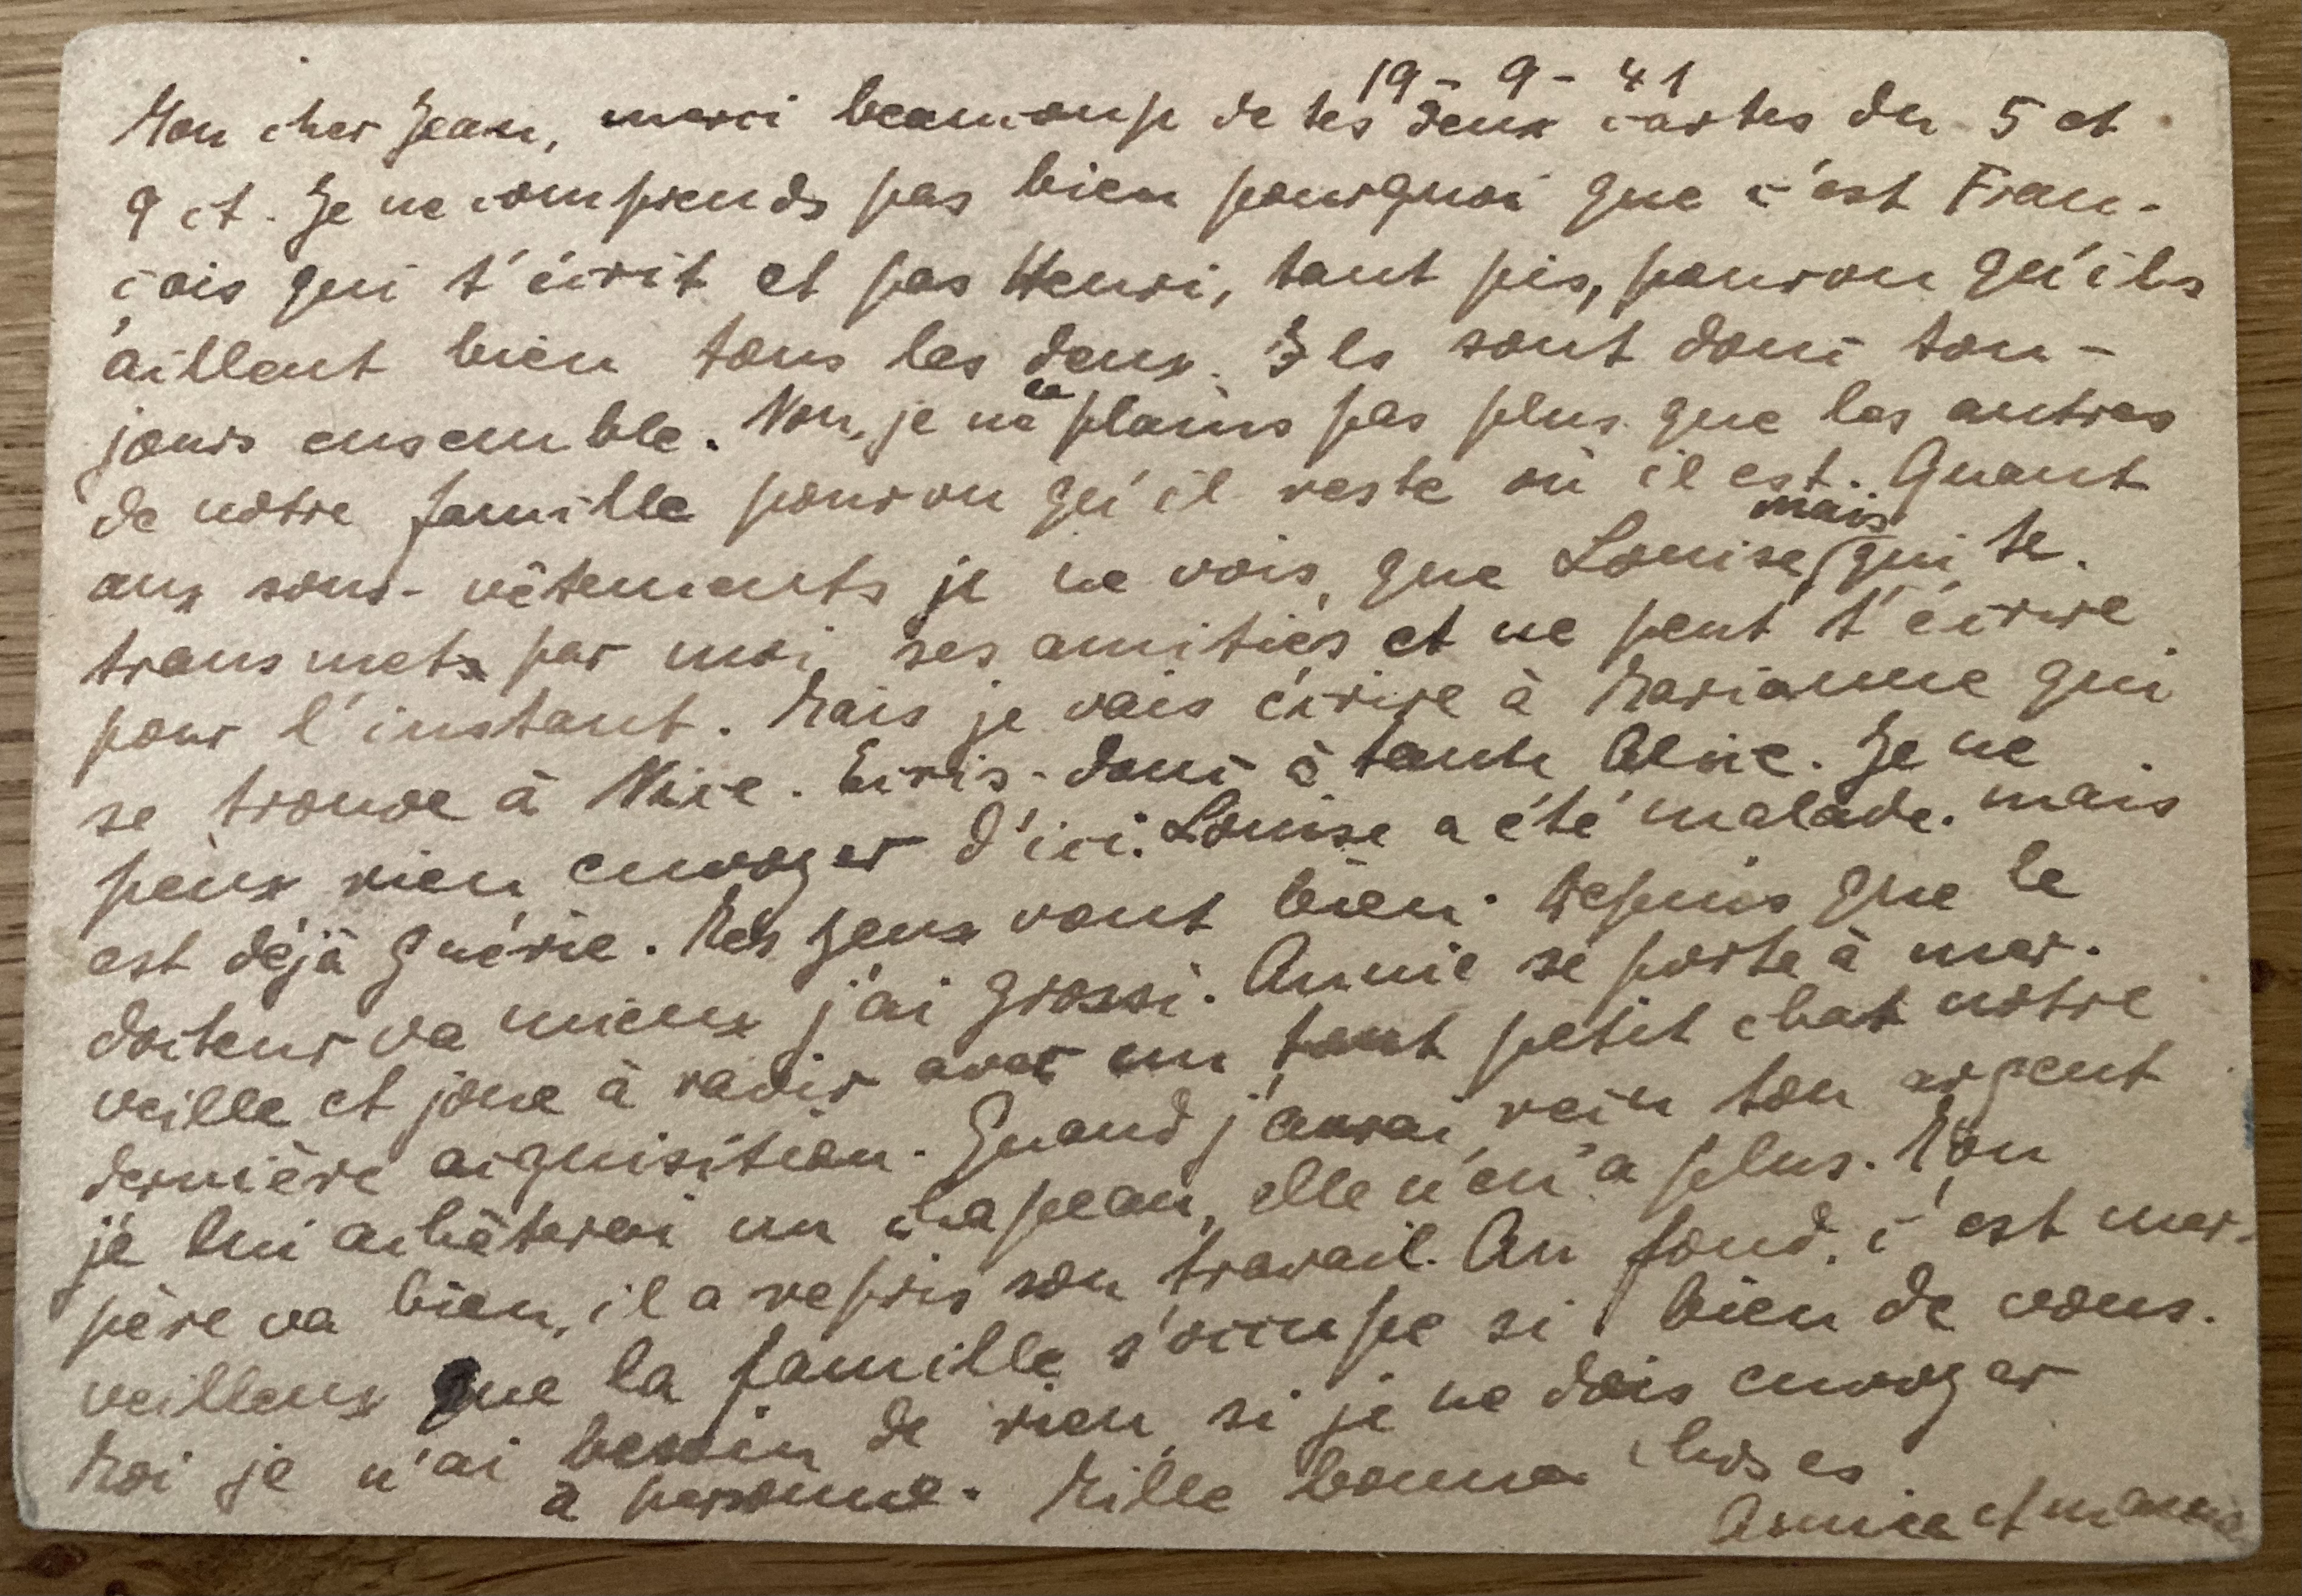 19 - 9 - 41
Mon cher Jean, merci beaucoup de tes deux cartes du 5 et
9 ct. Je ne comprends pas bien pourquoi que c'est Fran-
çois qui t'écrit et pas Henri, tant pis, pourvu qu'ils
aillent bien tous les deux. Ils sont donc tou-
jours ensemble. Non, je ne le plains pas plus que les autres
de notre famille pourvu qu'il reste où il est. Quant
aux sous-vêtements je ne vois, que Louise, mais qui te
transmets par moi ses amitiés et ne peut t'écrire
pour l'instant. Mais je vais écrire à Marianne qui
se trouve à Nice. Ecris-donc à tante Alice. Je ne
peux rien envoyer d'ici. Louise a été malade. mais
est déjà guérie. Mes yeux vont bien. Depuis que le
docteur va mieux j'ai grossi. Annie se porte à mer-
veille et joue à ravir avec un tout petit chat notre
dernière acquisition. Quand j'aurai reçu ton argent
je lui achèterai un chapeau, elle n'en a plus. Ton
père va bien, il a repris son travail. Au fond, c'est mer-
veilleux que la famille s'occupe si bien de vous.
Moi je n'ai besoin de rien, si je ne dois envoyer
à personne. Mille bonnes choses
Annie et maman